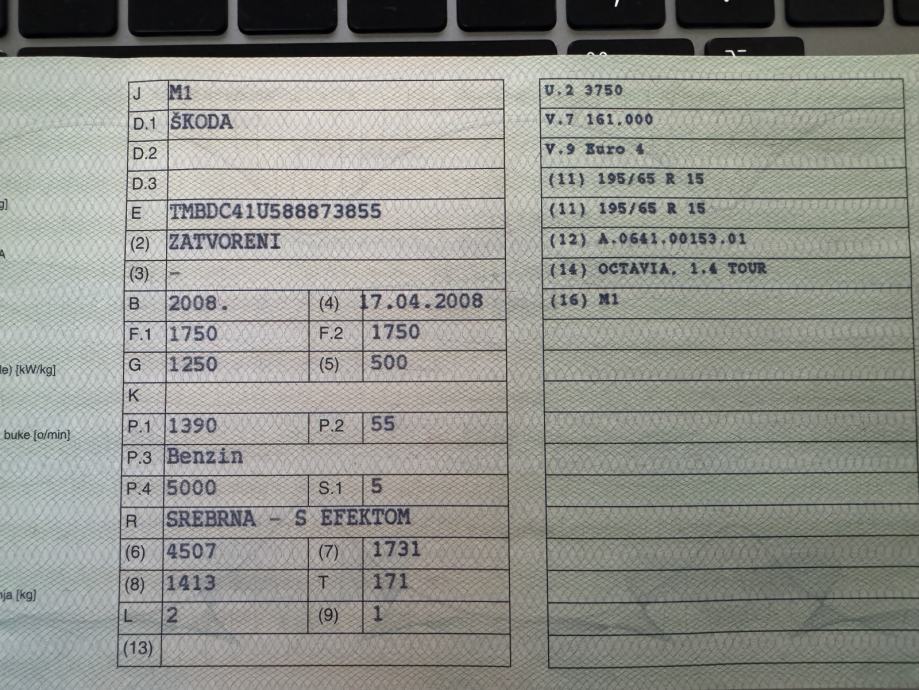 J M1
D.1 ŠKODA
D.2
D.3
E TMBDC41U588873855
(2) ZATVORENI
(3) –
B 2008. (4) 17.04.2008
F.1 1750 F.2 1750
G 1250 (5) 500
K
P.1 1390 P.2 55
P.3 Benzin
P.4 5000 S.1 5
R SREBRNA - S EFEKTOM
(6) 4507 (7) 1731
(8) 1413 T 171
L 2 (9) 1
(13)
U.2 3750
V.7 161.000
V.9 Euro 4
(11) 195/65 R 15
(11) 195/65 R 15
(12) A.0641.00153.01
(14) OCTAVIA, 1.4 TOUR
(16) M1
g]
A
le) [kW/kg]
buke [o/min]
nja [kg]